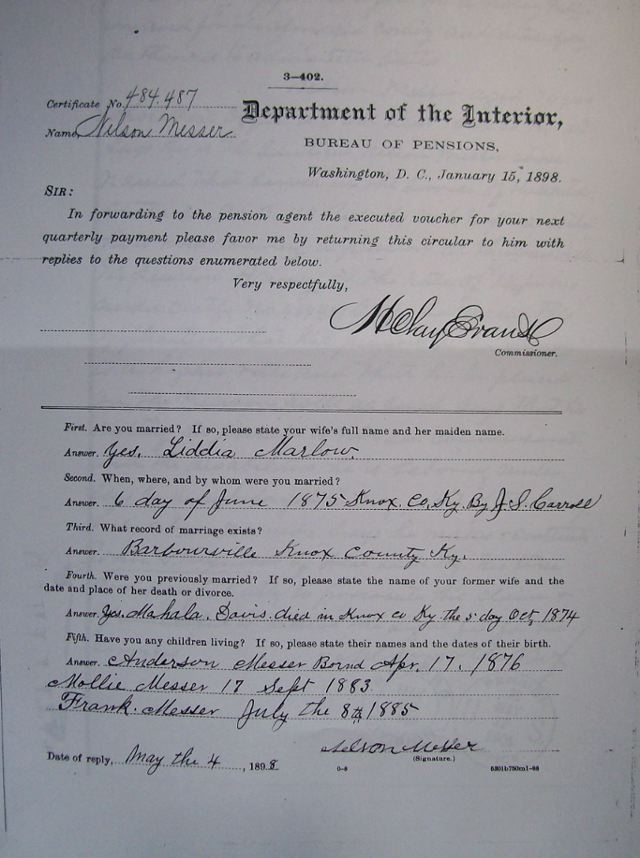 3—402.
Certificate No. 484.487
Department of the Interior,
Name, Nelson Messer
BUREAU OF PENSIONS,
Washington, D. C., January 15, 1898.
SIR:
In forwarding to the pension agent the executed voucher for your next
quarterly payment please favor me by returning this circular to him with
replies to the questions enumerated below.
Very respectfully,
H Clay Evans
Commissioner.
First. Are you married? If so, please state your wife's full name and her maiden name.
Answer. Yes. Liddia Marlow.
Second. When, where, and by whom were you married?
Answer. 6 day of June 1875 Knox. Co, Ky. By J. S. Carroll
Third. What record of marriage exists?
Answer. Barbourville Knox County Ky.
Fourth. Were you previously married? If so, please state the name of your former wife and the
date and place of her death or divorce.
Answer. Yes. Mahala. Davis. died in Knox co Ky the 5 day Oct, 1874
Fifth. Have you any children living? If so, please state their names and the dates of their birth.
Answer. Anderson Messer Bornd Apr. 17. 1876
Mollie Messer 17 Sept 1883
Frank. Messer July the 8th 1885
Nelson Messer
Date of reply, May the 4, 1898
(Signature.)